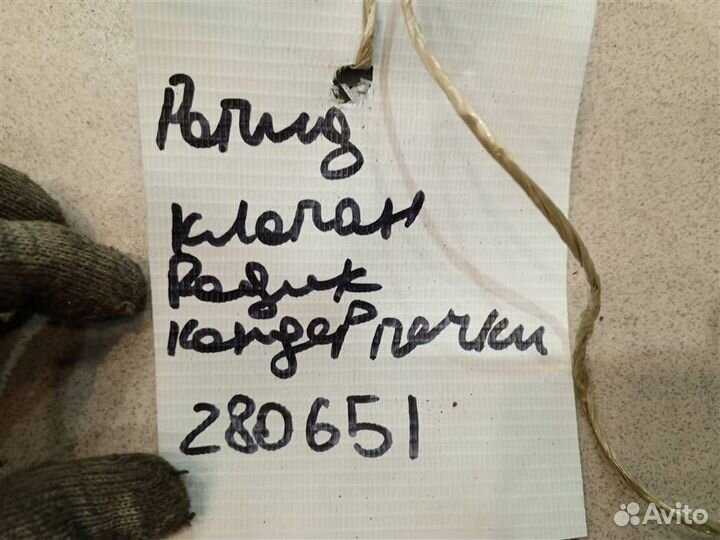 Рапид
клапан
Радик
кондер печки
280651
Avito